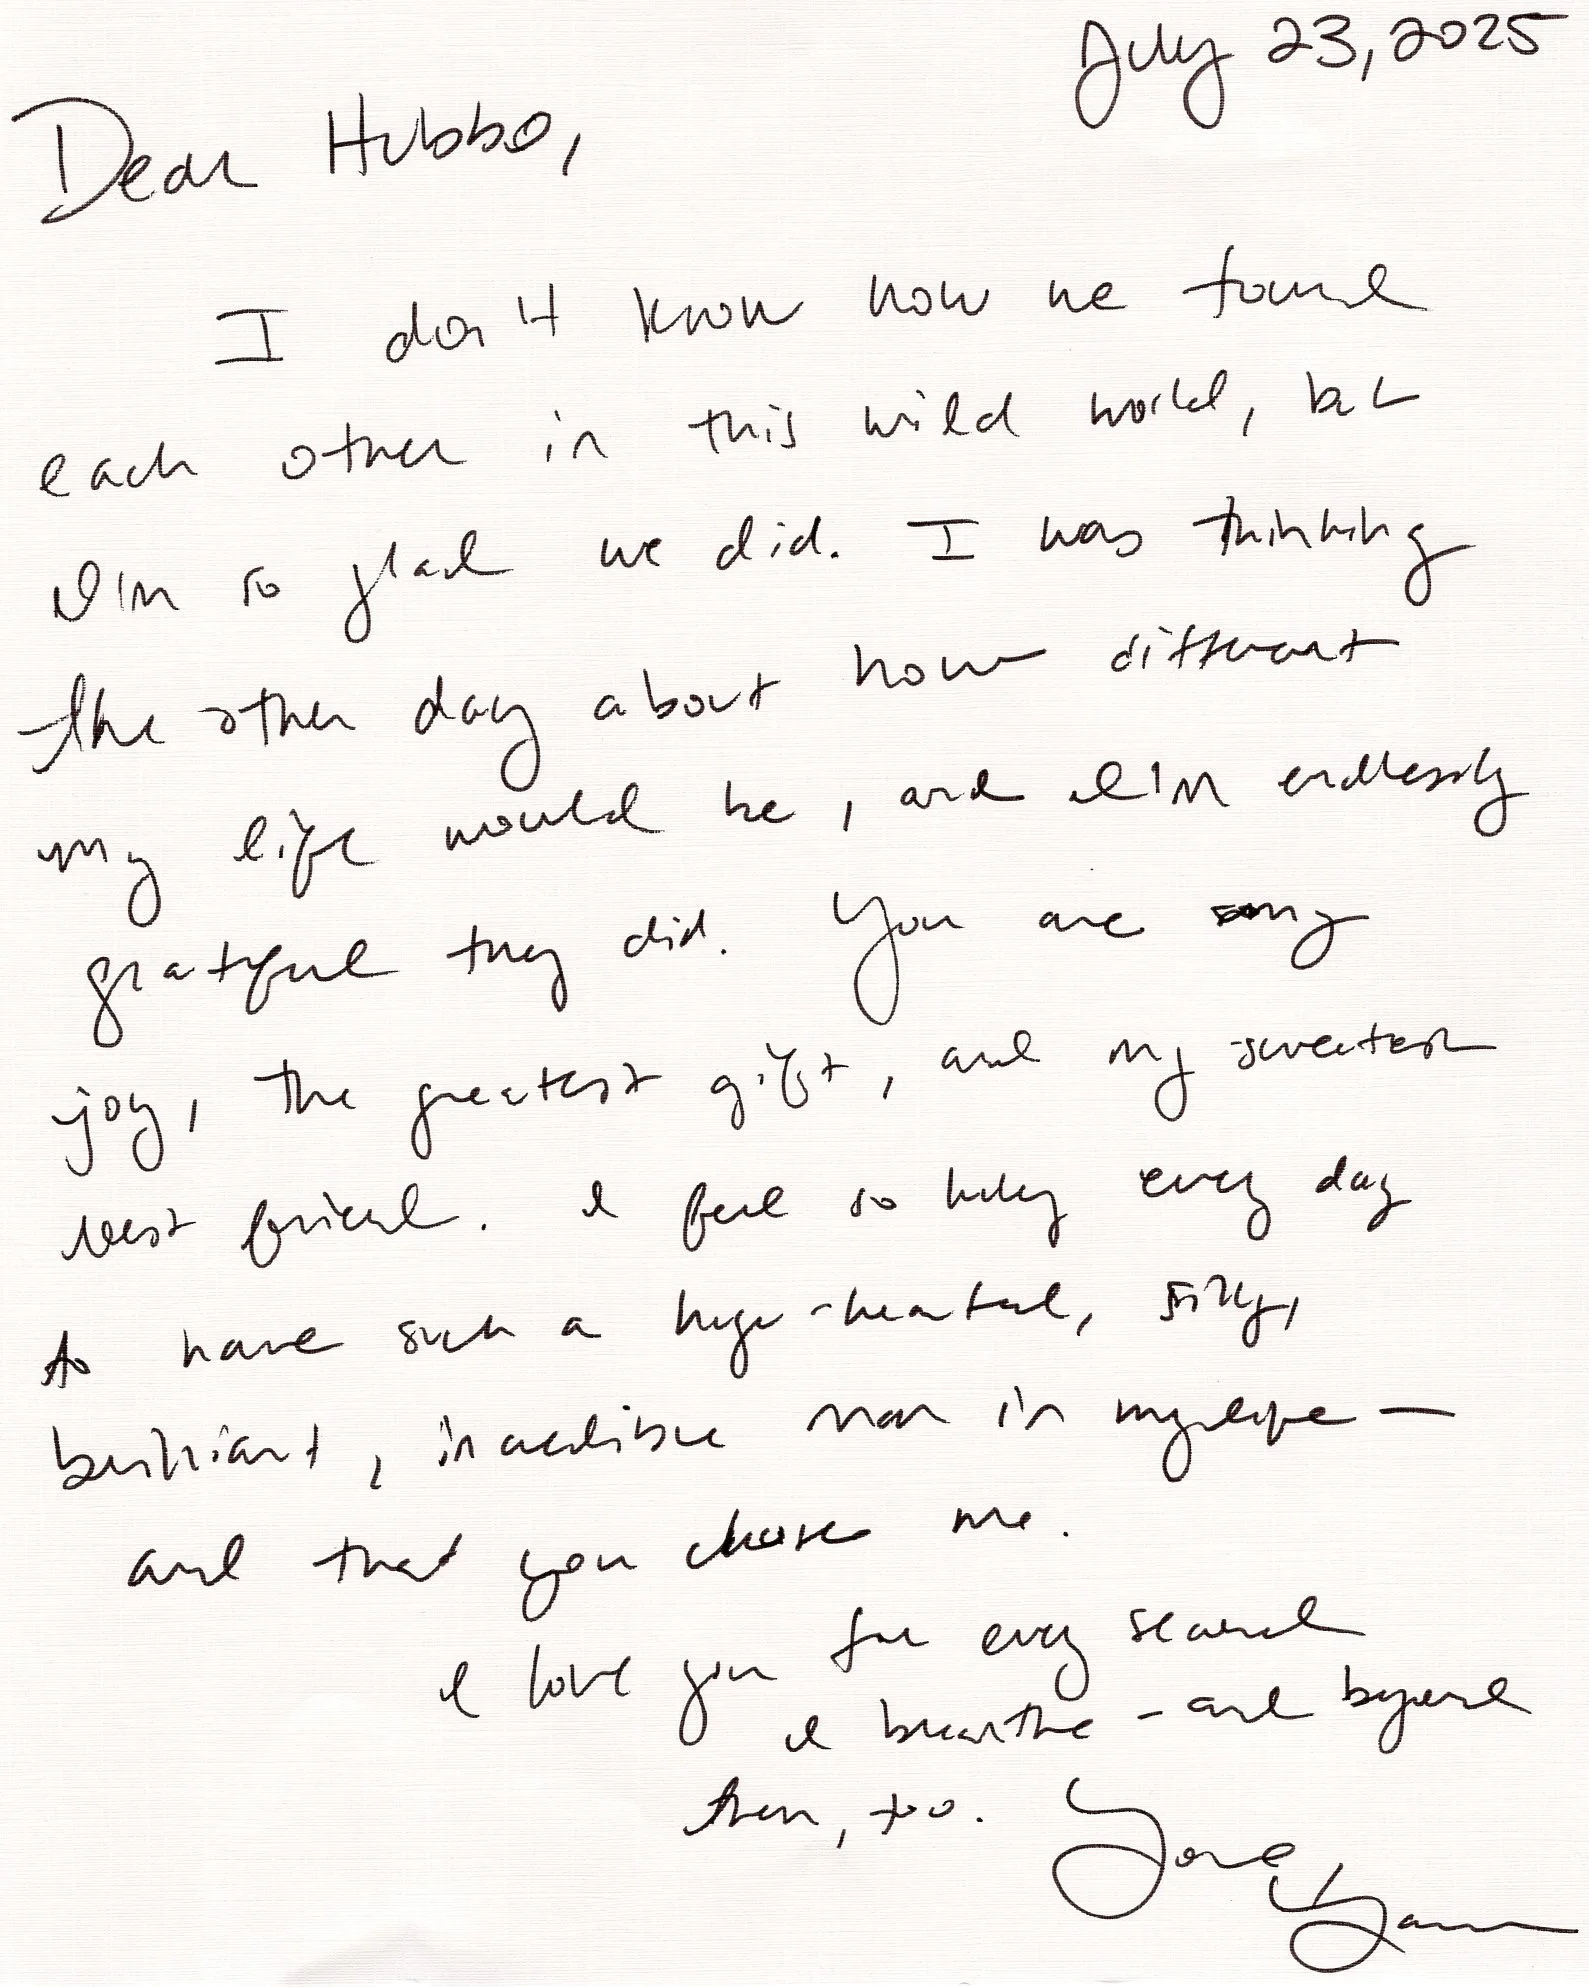 July 23, 2025
Dear Hubbo,
I don't know how we found
each other in this wild world, but
I'm so glad we did. I was thinking
the other day about how different
my life would be, and I'm endlessly
grateful they did. You are my
joy, the greatest gift, and my sweetest
best friend. I feel so lucky every day
to have such a huge-hearted, silly,
brilliant, incredible man in my life —
and that you chose me.
I love you for every second
I breathe - and beyond
then, too.
Love,